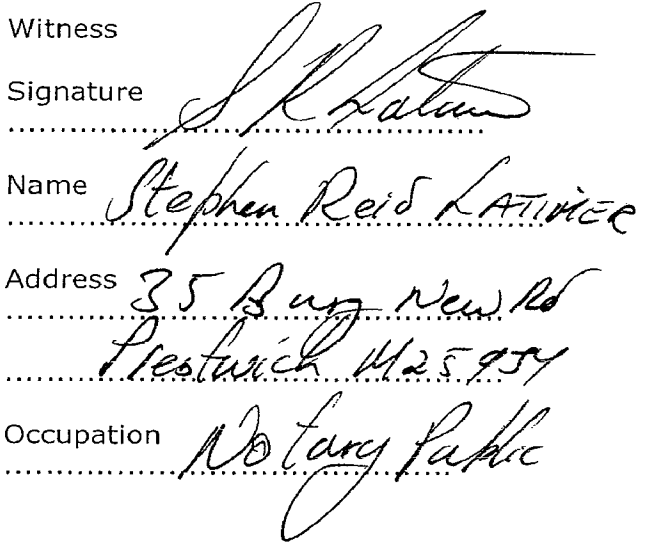 Witness
Signature S R Latimer
Name Stephen Reid LATIMER
Address 35 Bury New Rd
Prestwich M25 9JY
Occupation Notary Public